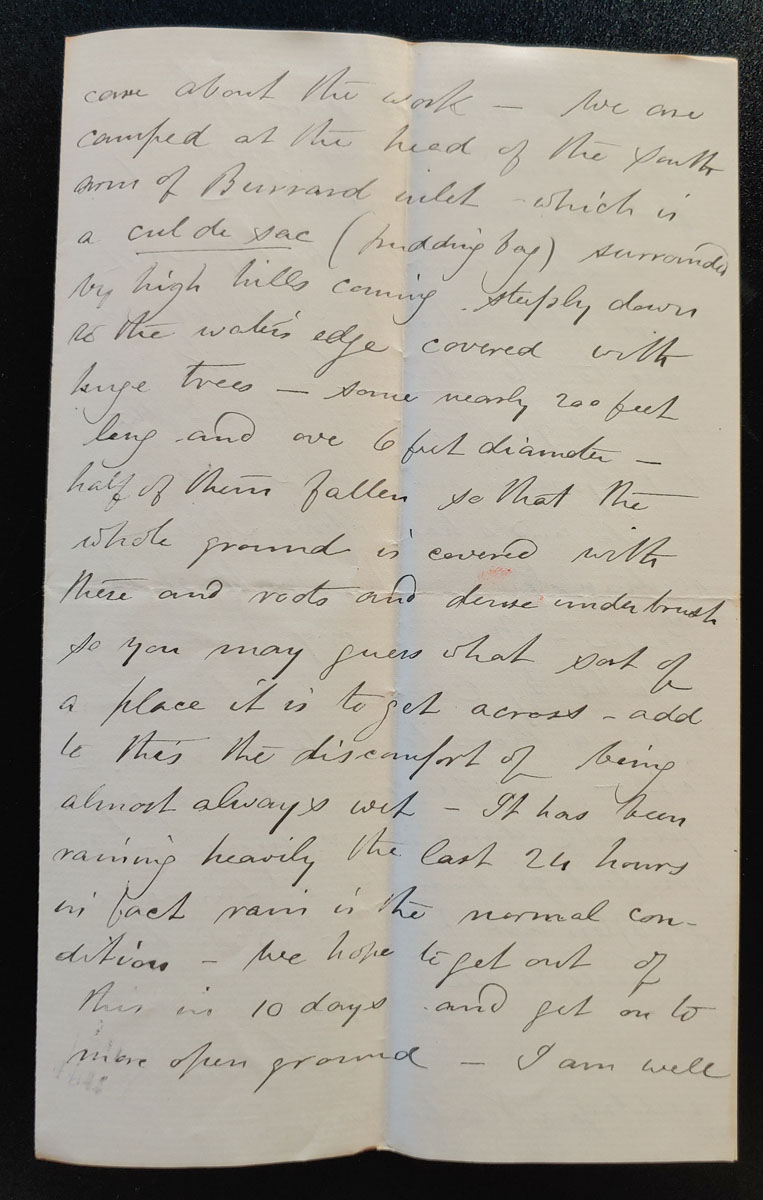 care about the work – We are
camped at the head of the south
arm of Burrard inlet - which is
a cul de sac (pudding bag) surrounded
by high hills coming steeply down
to the water's edge covered with
huge trees – some nearly 200 feet
long and ove 6 feet diameter –
half of them fallen so that the
whole ground is covered with
these and roots and dense underbrush
so you may guess what sort of
a place it is to get across - add
to this the discomfort of being
almost always wet – It has been
raining heavily the last 24 hours
in fact rain is the normal con-
dition – We hope to get out of
this in 10 days and get on to
more open ground – I am well